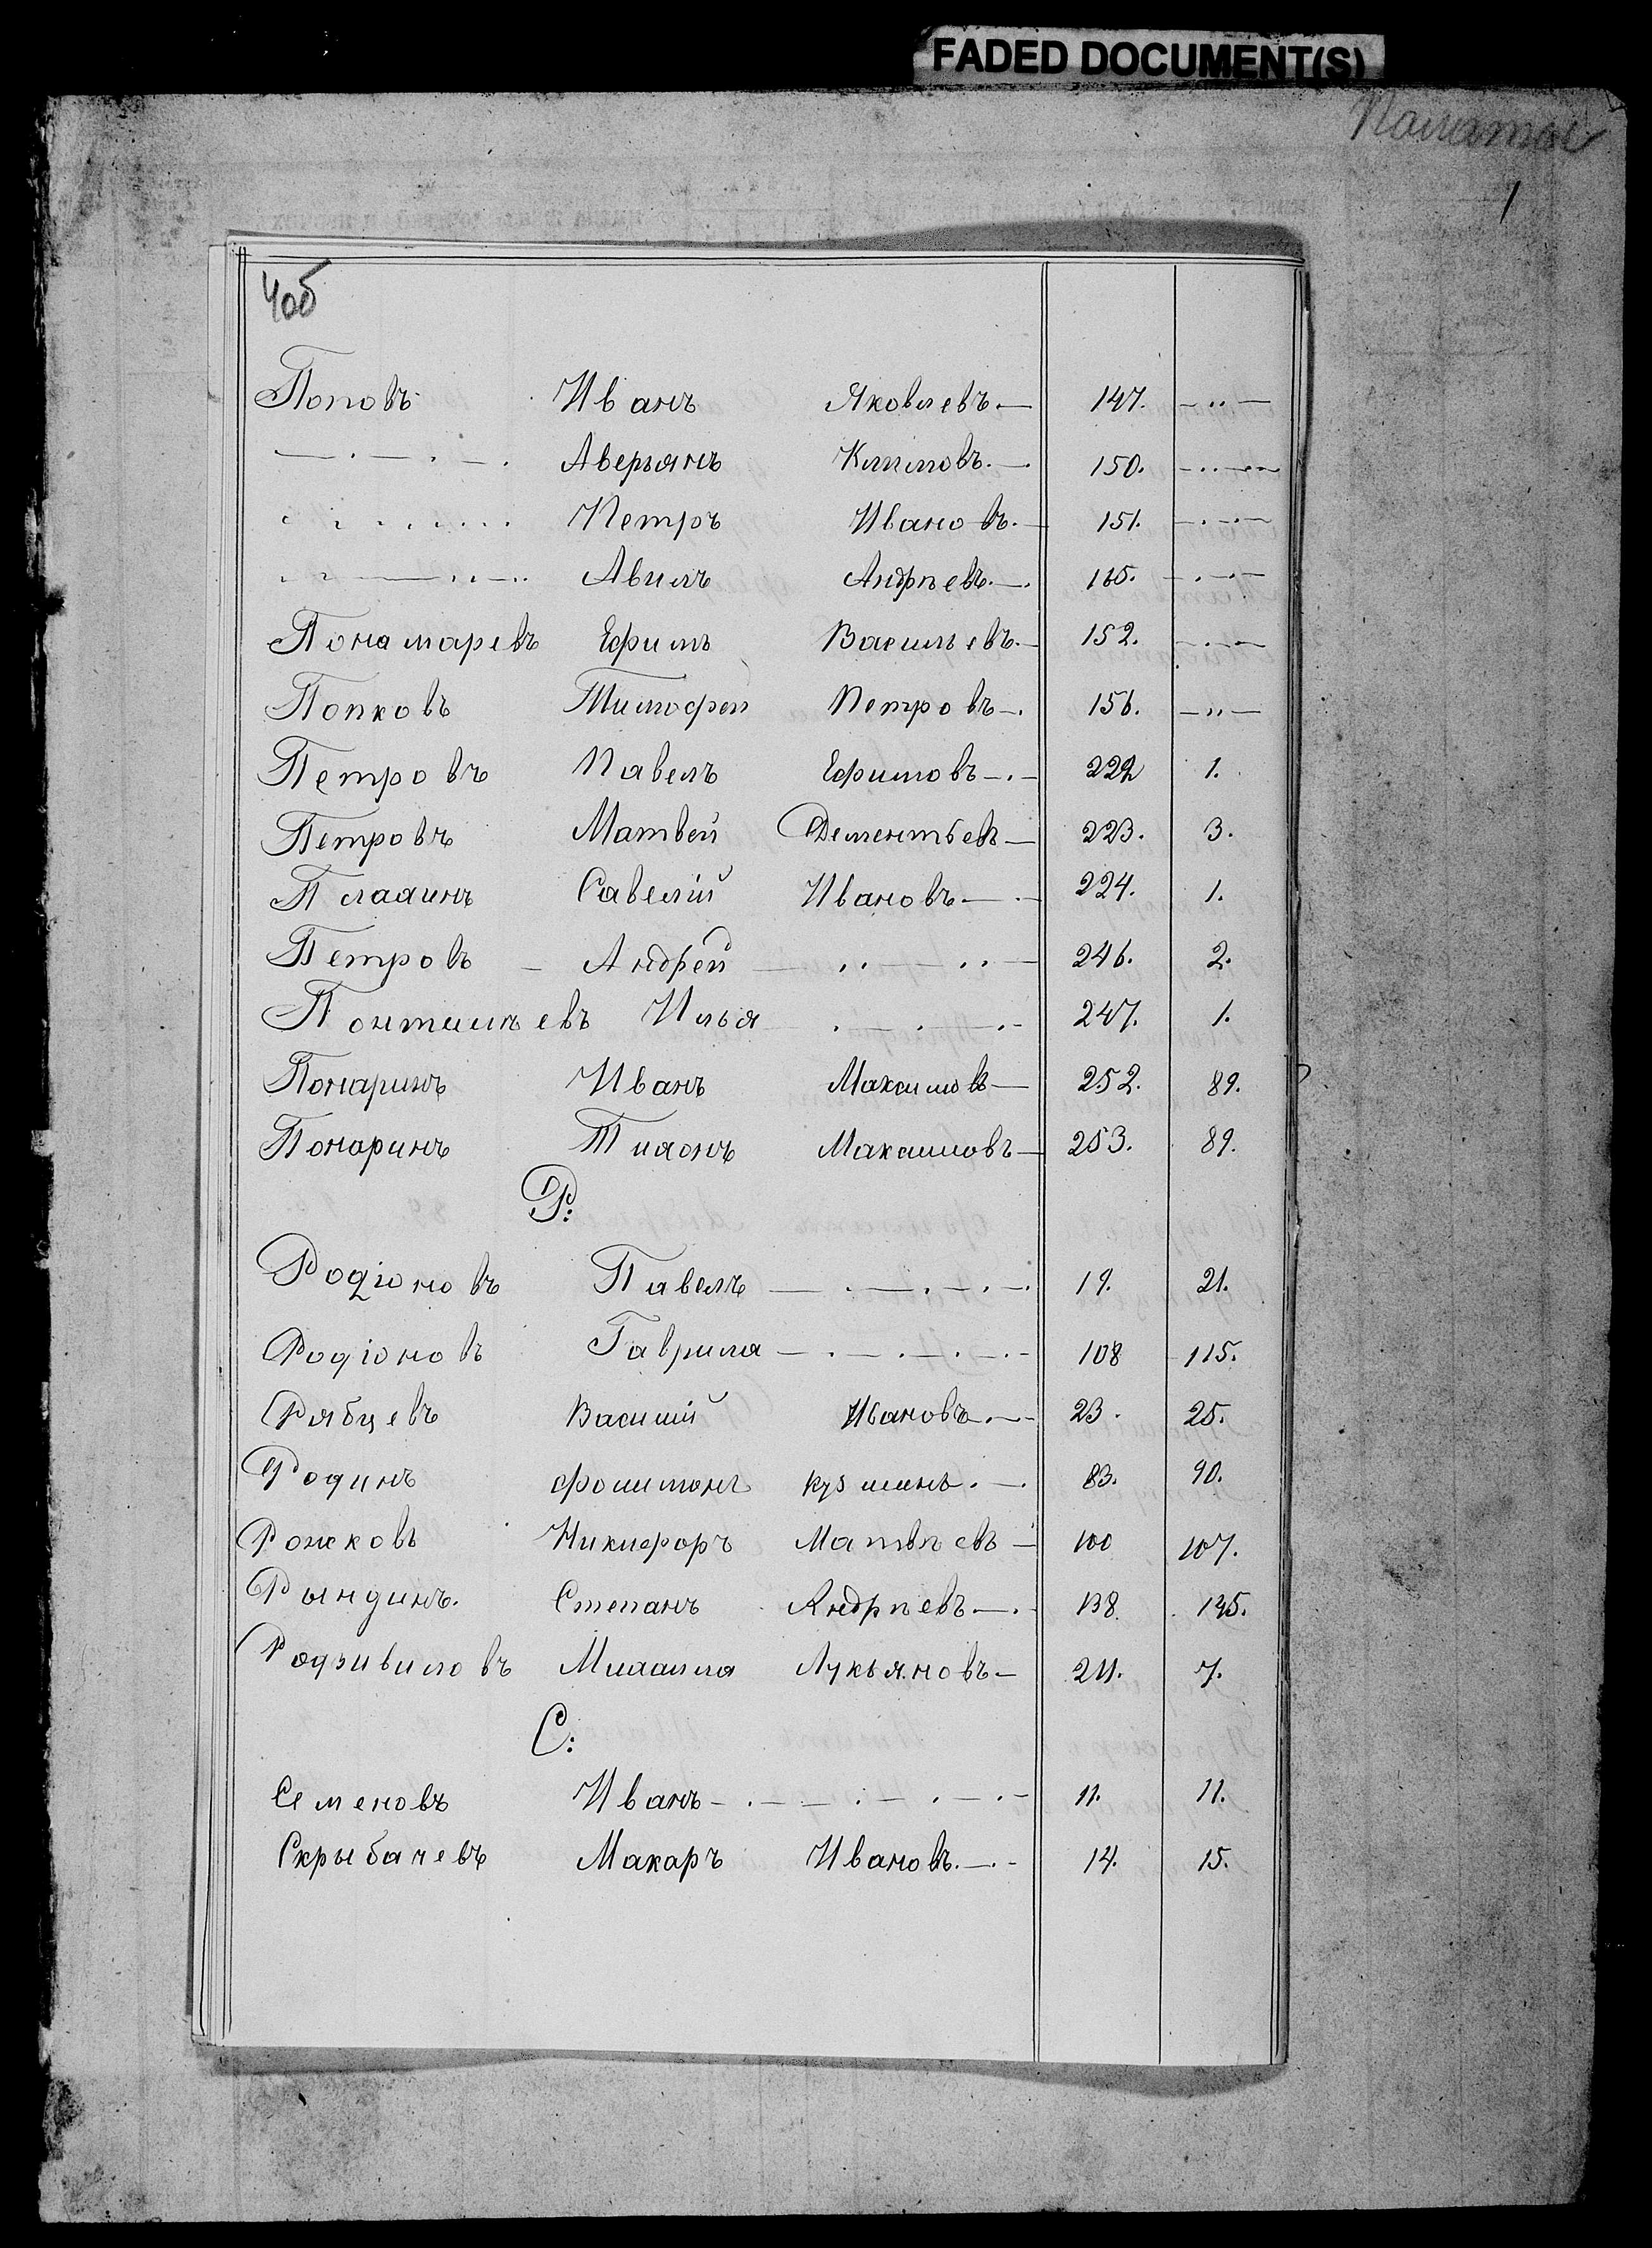 FADED DOCUMENT(S)
1
4об
Поповъ Иванъ Яковлевъ.— 147. —"—
—·—·—· Аверьянъ Климовъ.—· 150. —··—
········ Петръ Ивановъ.— 151. —·—·—
··—··—·· Авилъ Андрѣевъ.—· 165. —·—·—
Понамаревъ Ефимъ Васильевъ.— 152. —·—·—
Попковъ Тимофей Петровъ—. 156. —"—
Петровъ Павелъ Ефимовъ—·— 222 1.
Петровъ Матвей Дементьевъ— 223. 3.
Савелій Ивановъ—·— 224. 1.
Петровъ — Андрей —··—··— 246. 2.
Илья ·—·—·— 247. 1.
Понаринъ Иванъ Максимовъ— 252. 89.
Понаринъ Тихонъ Максимовъ— 253. 89.
Р:
Родіоновъ Павелъ —·—·—·—· 19. 21.
Родіоновъ Гаврила —·—·—·— 108 115.
Рябцевъ Василій Ивановъ.—- 23. 25.
Родинъ кузминъ.—· 83. 90.
Рожковъ Никифоръ Матвѣевъ — 100 107.
Рындинъ. Степанъ Андрѣевъ—·— 138. 145.
Родзивиловъ Михаила Лукьяновъ— 211. 7.
С:
Семеновъ Иванъ—·—·—·—·— 11. 11.
Скрыбачевъ Макаръ Ивановъ.—·- 14. 15.